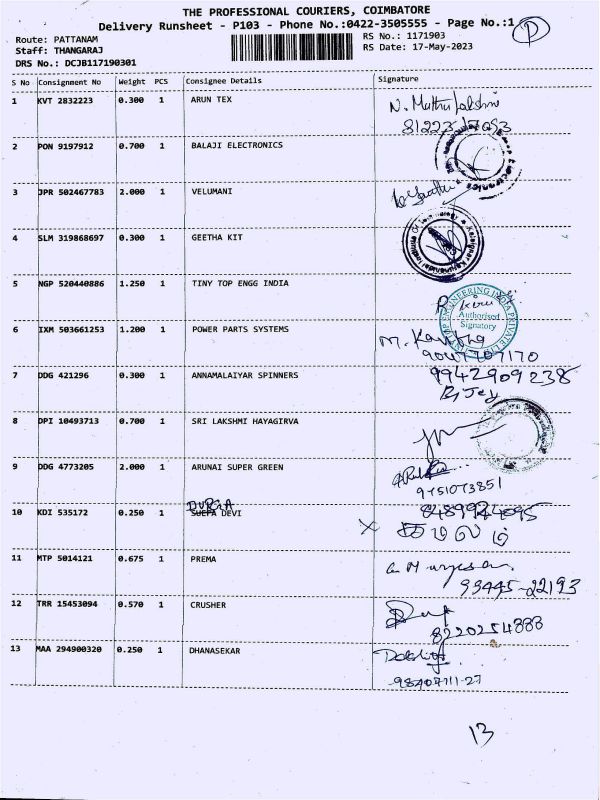 THE PROFESSIONAL COURIERS, COIMBATORE
Delivery Runsheet - P103 - Phone No.:0422-3505555 - Page No.:1
P
Route: PATTANAM
RS No.: 1171903
Staff: THANGARAJ
RS Date: 17-May-2023
DRS No.: DCJB117190301
S No Consignment No Weight PCS Consignee Details Signature
1 KVT 2832223 0.300 1 ARUN TEX
2 PON 9197912 0.700 1 BALAJI ELECTRONICS
3 JPR 502467783 2.000 1 VELUMANI
4 SLM 319868697 0.300 1 GEETHA KIT
5 NGP 520440886 1.250 1 TINY TOP ENGG INDIA
Authorised
Signatory
6 IXM 503661253 1.200 1 POWER PARTS SYSTEMS
7 DDG 421296 0.300 1 ANNAMALAIYAR SPINNERS 9942909238
8 DPI 10493713 0.700 1 SRI LAKSHMI HAYAGIRVA
9 DDG 4773205 2.000 1 ARUNAI SUPER GREEN
9751073851
DURGA
10 KDI 535172 0.250 1 DEVI
11 MTP 5014121 0.675 1 PREMA
99445-22193
12 TRR 15453094 0.570 1 CRUSHER
8220254888
13 MAA 294900320 0.250 1 DHANASEKAR
13